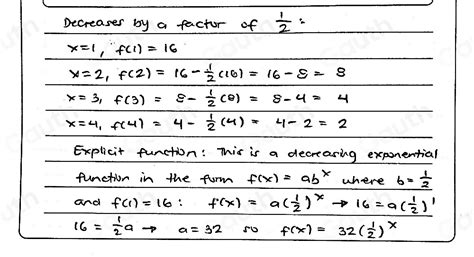 Decreases by a factor of 1/2 :
x=1, f(1) = 16
x=2, f(2) = 16 - 1/2(16) = 16 - 8 = 8
x=3, f(3) = 8 - 1/2(8) = 8 - 4 = 4
x=4, f(4) = 4 - 1/2(4) = 4 - 2 = 2
Explicit function: This is a decreasing exponential
function in the form f(x) = ab^x where b = 1/2
and f(1) = 16: f(x) = a(1/2)^x → 16 = a(1/2)^1
16 = 1/2 a → a = 32 so f(x) = 32(1/2)^x